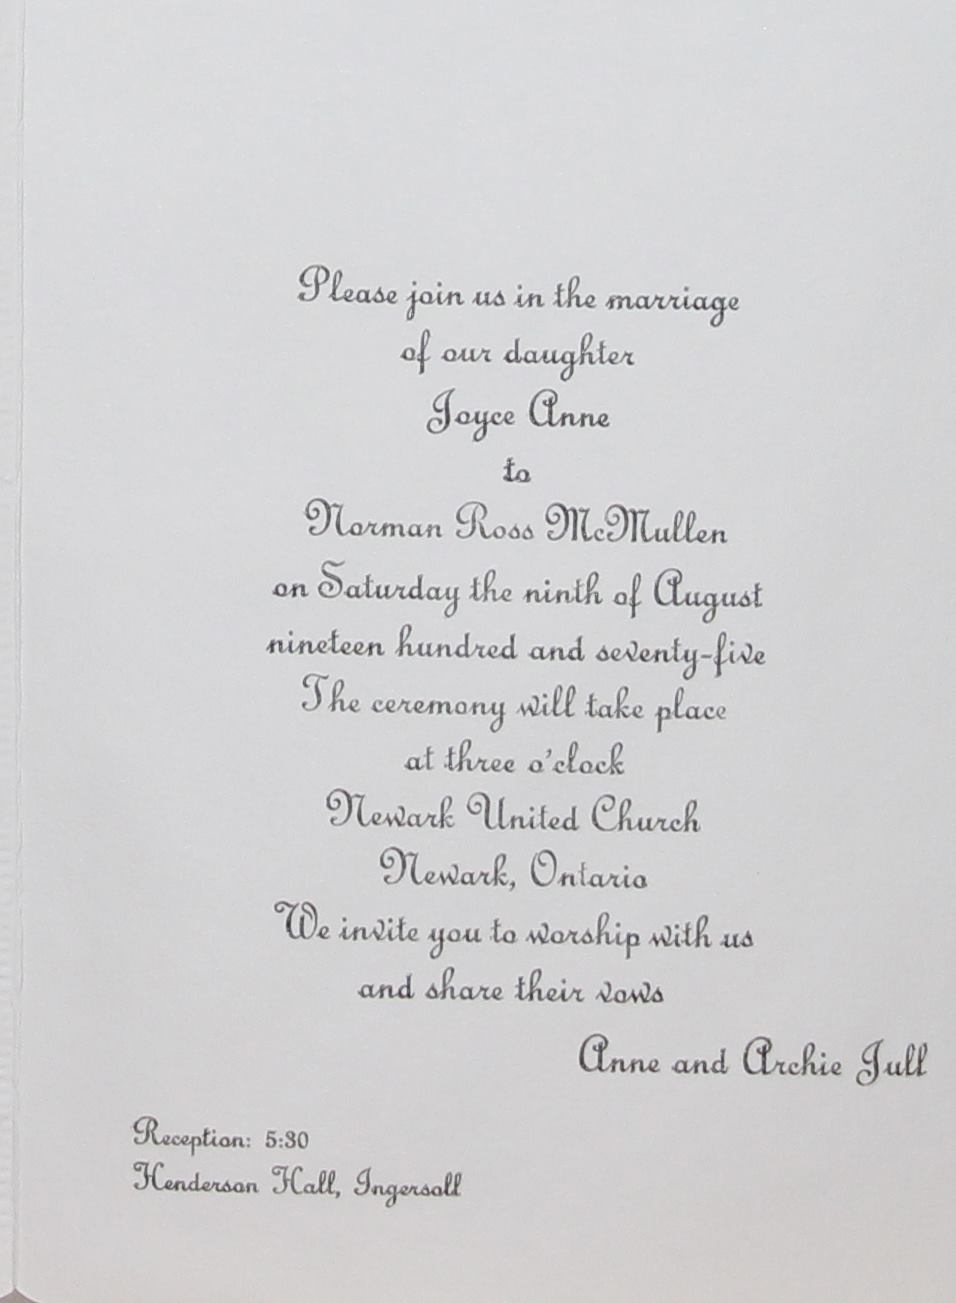 Please join us in the marriage
of our daughter
Joyce Anne
to
Norman Ross McMullen
on Saturday the ninth of August
nineteen hundred and seventy-five
The ceremony will take place
at three o'clock
Newark United Church
Newark, Ontario
We invite you to worship with us
and share their vows
Anne and Archie Jull
Reception: 5:30
Henderson Hall, Ingersoll